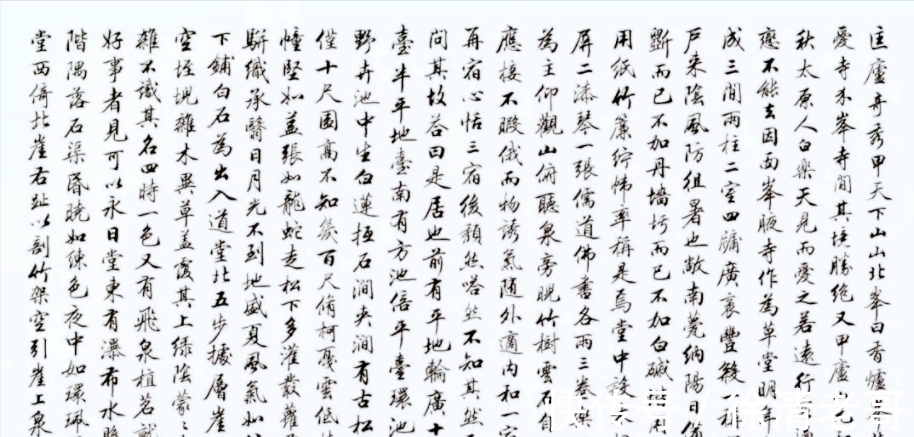 匡廬奇秀甲天下山山北峯曰香爐
愛寺介峯寺間其境勝絶又甲廬
秋太原人白樂天見而愛之若遠行
戀不能去因面峯腋寺作為草堂明
成三間兩柱二室四牖廣袤豐殺
戸来陰風防徂暑也敞南甍納陽日
斲而已不加丹墻圬而已不加白磩
用紙竹簾紵幃率稱是焉堂中設
屏二漆琴一張儒道佛書各兩三卷
為主仰觀山俯聽泉旁睨竹樹雲石自
應接不暇俄而物誘氣随外適内和一
再宿心恬三宿後頹然嗒然不知其然
問其故答曰是居也前有平地輪廣十
臺半平地臺南有方池倍平臺環池
野卉池中生白蓮垣石澗夾澗有古松
僅十尺圍高不知幾百尺脩柯戛雲低
幢竪如盖張如龍蛇走松下多灌叢蘿
駢織承翳日月光不到地盛夏風氣如
下鋪白石為出入道堂北五步據層崖
空垤堄雜木異草盖覆其上緑陰蒙々
雜不識其名四時一色又有飛泉植茗就
好事者見可以永日堂東有瀑布水
階隅落石渠昏曉如練色夜中如環珮
堂西倚北崖右趾以剖竹架空引崖上泉
快传号 / 徐清老哥